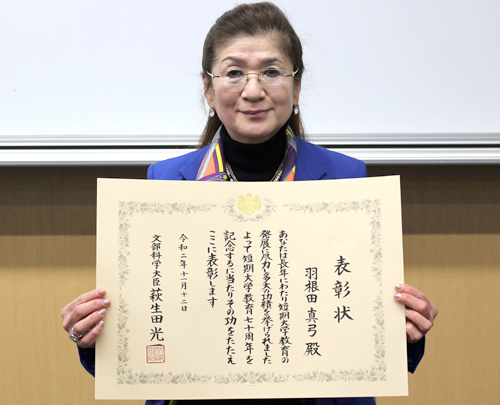 表彰状
羽根田 真弓 殿
あなたは長年にわたり短期大学教育の
発展に尽力し多大の功績を挙げられました
よって短期大学教育七十周年を
記念するに当たりその功をたたえ
ここに表彰します
令和二年十一月十二日
文部科学大臣 萩生田 光一